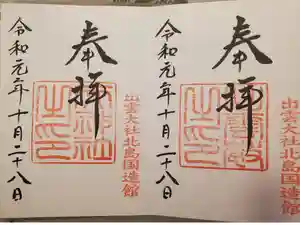 出雲大社北島国造館
奉拝
令和元年十月二十八日
出雲大社北島国造館
奉拝
令和元年十月二十八日